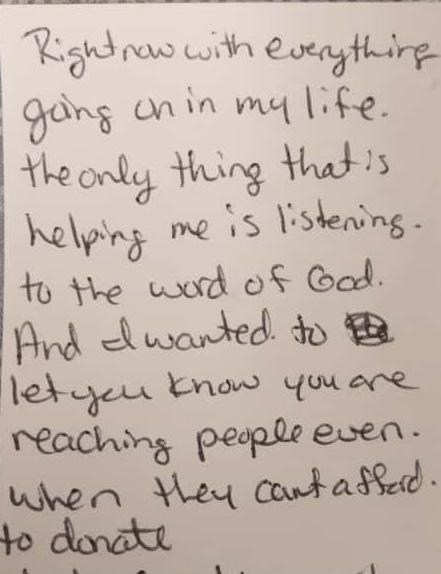 Right now with everything
going on in my life.
the only thing that is
helping me is listening.
to the word of God.
And I wanted. to
let you know you are
reaching people even.
when they cant afford.
to donate